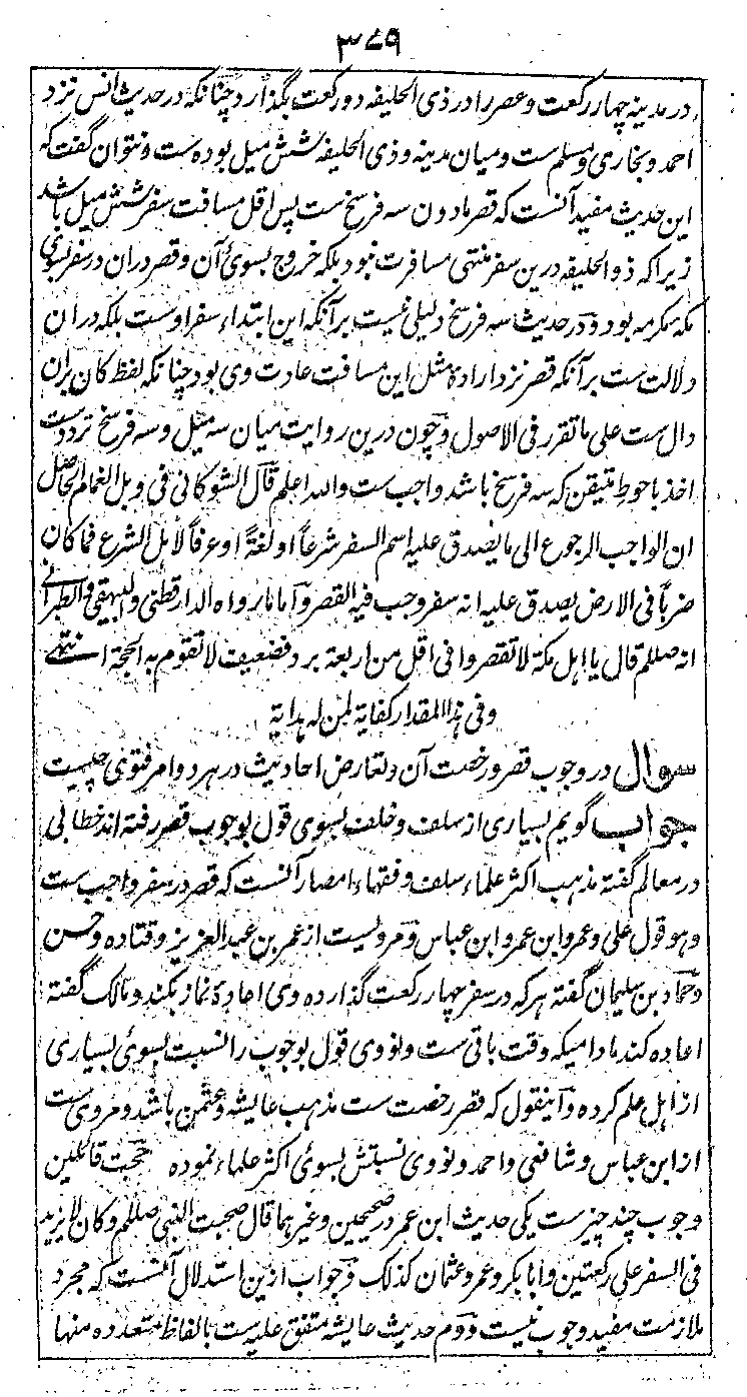 ۳۷۹
در مدینہ چہار رکعت و عصر را در ذی الحلیفہ دو رکعت بگذارد چنانکہ در حدیث انس نزد
احمد و بخاری و مسلم ست و میان مدینہ و ذی الحلیفہ شش میل بودہ ست و نتوان گفت کہ
این حدیث مفید آنست کہ قصر مادون سہ فرسخ ست پس اقل مسافت سفر شش میل باشد
زیرا کہ ذوالحلیفہ درین سفر منتہی مسافرت نبود بلکہ خروج بسوی آن و قصر دران در سفر بسوی
مکہ مکرمہ بود و در حدیث سہ فرسخ دلیلی نیست بر آنکہ این ابتداء سفر اوست بلکہ دران
دلالت ست بر آنکہ قصر نزد ارادۂ مثل این مسافت عادت وی بود چنانکہ لفظ کان بران
دال ست علی ما تقرر فی الاصول و چون درین روایت میان سہ میل و سہ فرسخ تردد ست
اخذ باحوط متیقن کہ سہ فرسخ باشد واجب ست واللہ اعلم قال الشوکانی فی وبل الغمام الحاصل
ان الواجب الرجوع الی ما یصدق علیہ اسم السفر شرعاً او لغۃً او عرفاً لاہل الشرع فما کان
ضرباً فی الارض یصدق علیہ انہ سفر وجب فیہ القصر و اما ما رواہ الدارقطنی والبیہقی والطبرانی
انہ صللم قال یا اہل مکۃ لا تقصروا فی اقل من اربعۃ برد فضعیف لا تقوم بہ الحجۃ انتہی
وفی ہذا المقدار کفایۃ لمن لہ ہدایۃ
سوال در وجوب قصر و رخصت آن و تعارض احادیث در ہر دو امر فتوی چیست
جواب گویم بسیاری از سلف و خلف بسوی قول بوجوب قصر رفتہ اند خطابی
در معالم گفتہ مذہب اکثر علماء سلف و فقہاء امصار آنست کہ قصر در سفر واجب ست
وہو قول علی و عمر و ابن عمر و ابن عباس و مرویست از عمر بن عبد العزیز و قتادہ و حسن
و حماد بن سلیمان گفتہ ہر کہ در سفر چہار رکعت گذاردہ وی اعادۂ نماز بکند و مالک گفتہ
اعادہ کند مادامیکہ وقت باقی ست و نووی قول بوجوب را نسبت بسوی بسیاری
از اہل علم کردہ و اینقول کہ قصر رخصت ست مذہب عایشہ و عثمن باشد و مروی ست
از ابن عباس و شافعی و احمد و نووی نسبتش بسوی اکثر علماء نمودہ حجت قائلین
وجوب چند چیز ست یکی حدیث ابن عمر در صحیحین و غیرہما قال صحبت النبی صللم و کان لا یزید
فی السفر علی رکعتین و ابا بکر و عمر و عثمان کذلک و جواب ازین استدلال آنست کہ مجرد
ملازمت مفید وجوب نیست دوم حدیث عایشہ متفق علیہ ست بالفاظ متعددہ منہا